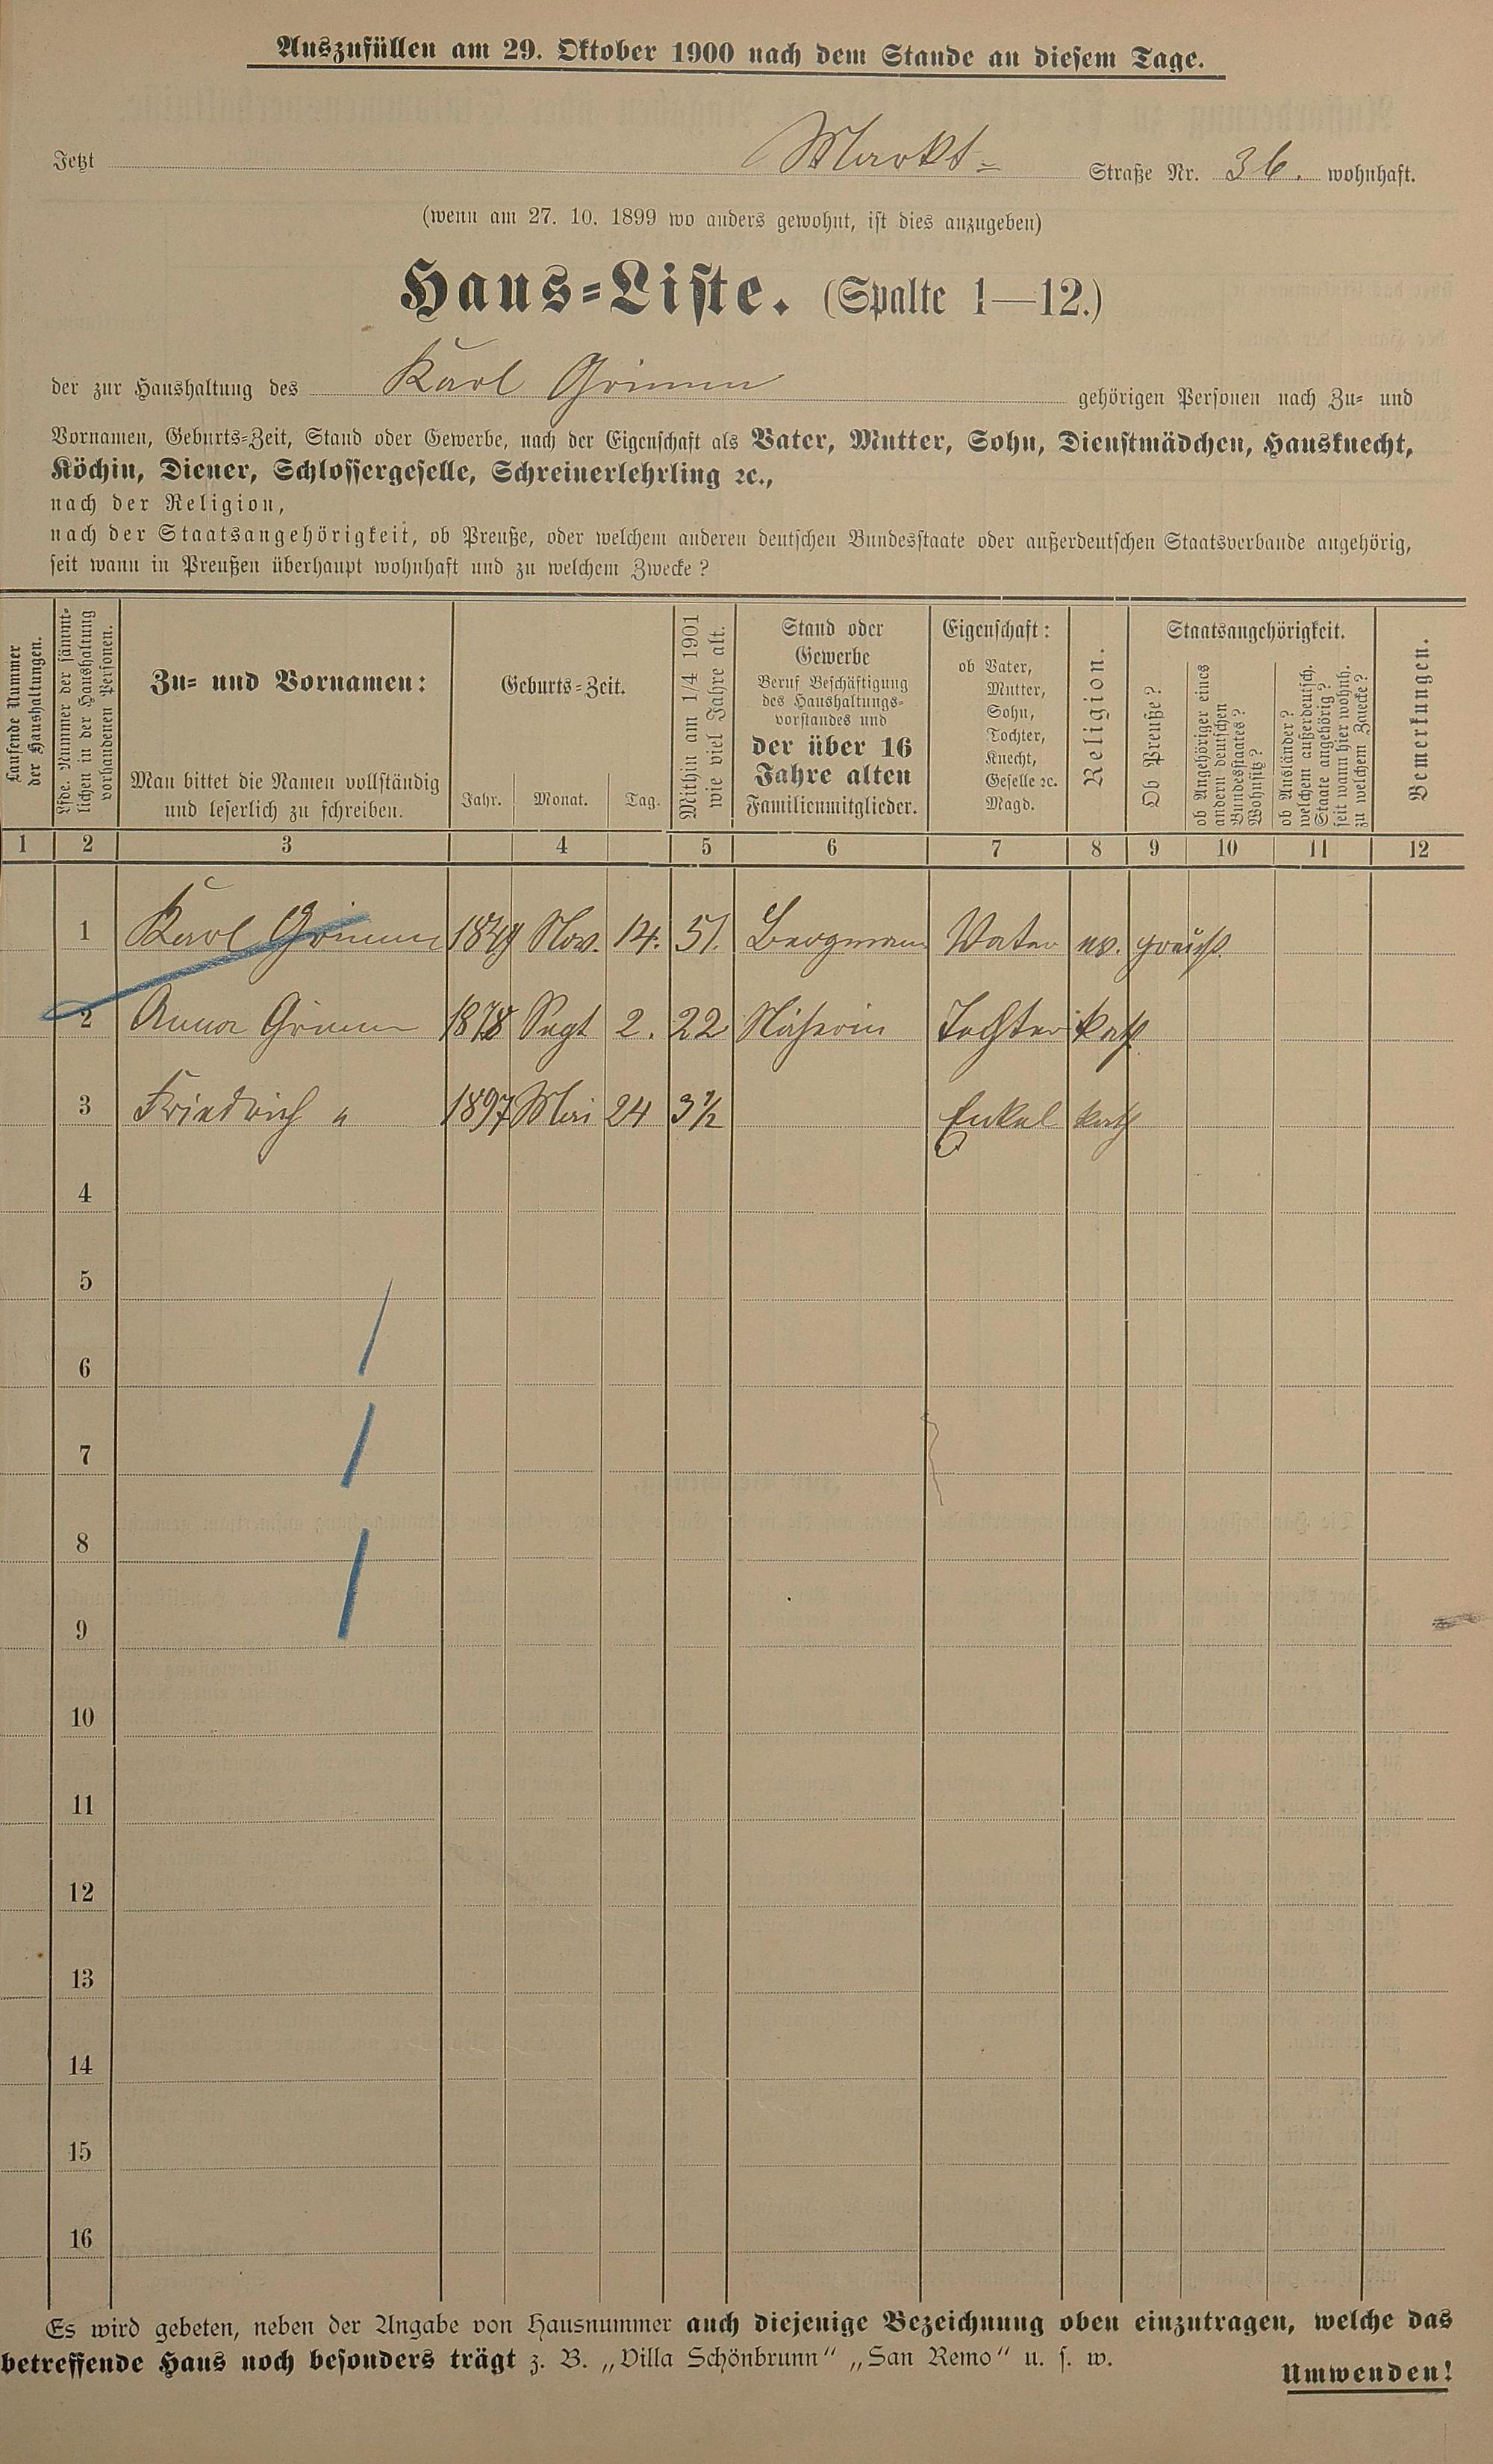 Auszufüllen am 29. Oktober 1900 nach dem Stande an diesem Tage.
Jetzt Markt- Straße Nr. 36. wohnhaft.
(wenn am 27. 10. 1899 wo anders gewohnt, ist dies anzugeben)
Haus-Liste. (Spalte 1—12.)
der zur Haushaltung des Karl Grimm gehörigen Personen nach Zu- und
Vornamen, Geburts-Zeit, Stand oder Gewerbe, nach der Eigenschaft als Vater, Mutter, Sohn, Dienstmädchen, Hausknecht,
Köchin, Diener, Schlossergeselle, Schreinerlehrling ꝛc.,
nach der Religion,
nach der Staatsangehörigkeit, ob Preuße, oder welchem anderen deutschen Bundesstaate oder außerdeutschen Staatsverbande angehörig,
seit wann in Preußen überhaupt wohnhaft und zu welchem Zwecke?
Laufende Nummer
der Haushaltungen.
Lfde. Nummer der sämmt-
lichen in der Haushaltung
vorhandenen Personen.
Zu- und Vornamen:
Man bittet die Namen vollständig
und leserlich zu schreiben.
Geburts-Zeit.
Jahr. Monat. Tag.
Mithin am 1/4 1901
wie viel Jahre alt.
Stand oder
Gewerbe
Beruf Beschäftigung
des Haushaltungs-
vorstandes und
der über 16
Jahre alten
Familienmitglieder.
Eigenschaft:
ob Vater,
Mutter,
Sohn,
Tochter,
Knecht,
Geselle ꝛc.
Magd.
Religion.
Staatsangehörigkeit.
Ob Preuße?
ob Angehöriger eines
andern deutschen
Bundesstaates?
Wohnsitz?
ob Ausländer?
welchem außerdeutsch.
Staate angehörig?
seit wann hier wohnh.
zu welchem Zwecke?
Bemerkungen.
1 2 3 4 5 6 7 8 9 10 11 12
1 Karl Grimm 1849 Nov. 14. 51. Bergmann Vater ev. preuß.
2 Anna Grimm 1878 Sept 2. 22 Näherin Tochter kath
3 Friedrich " 1897 Mai 24 3½ Enkel kath
4
5
6
7
8
9
10
11
12
13
14
15
16
Es wird gebeten, neben der Angabe von Hausnummer auch diejenige Bezeichnung oben einzutragen, welche das
betreffende Haus noch besonders trägt z. B. „Villa Schönbrunn“ „San Remo“ u. s. w.
Umwenden!